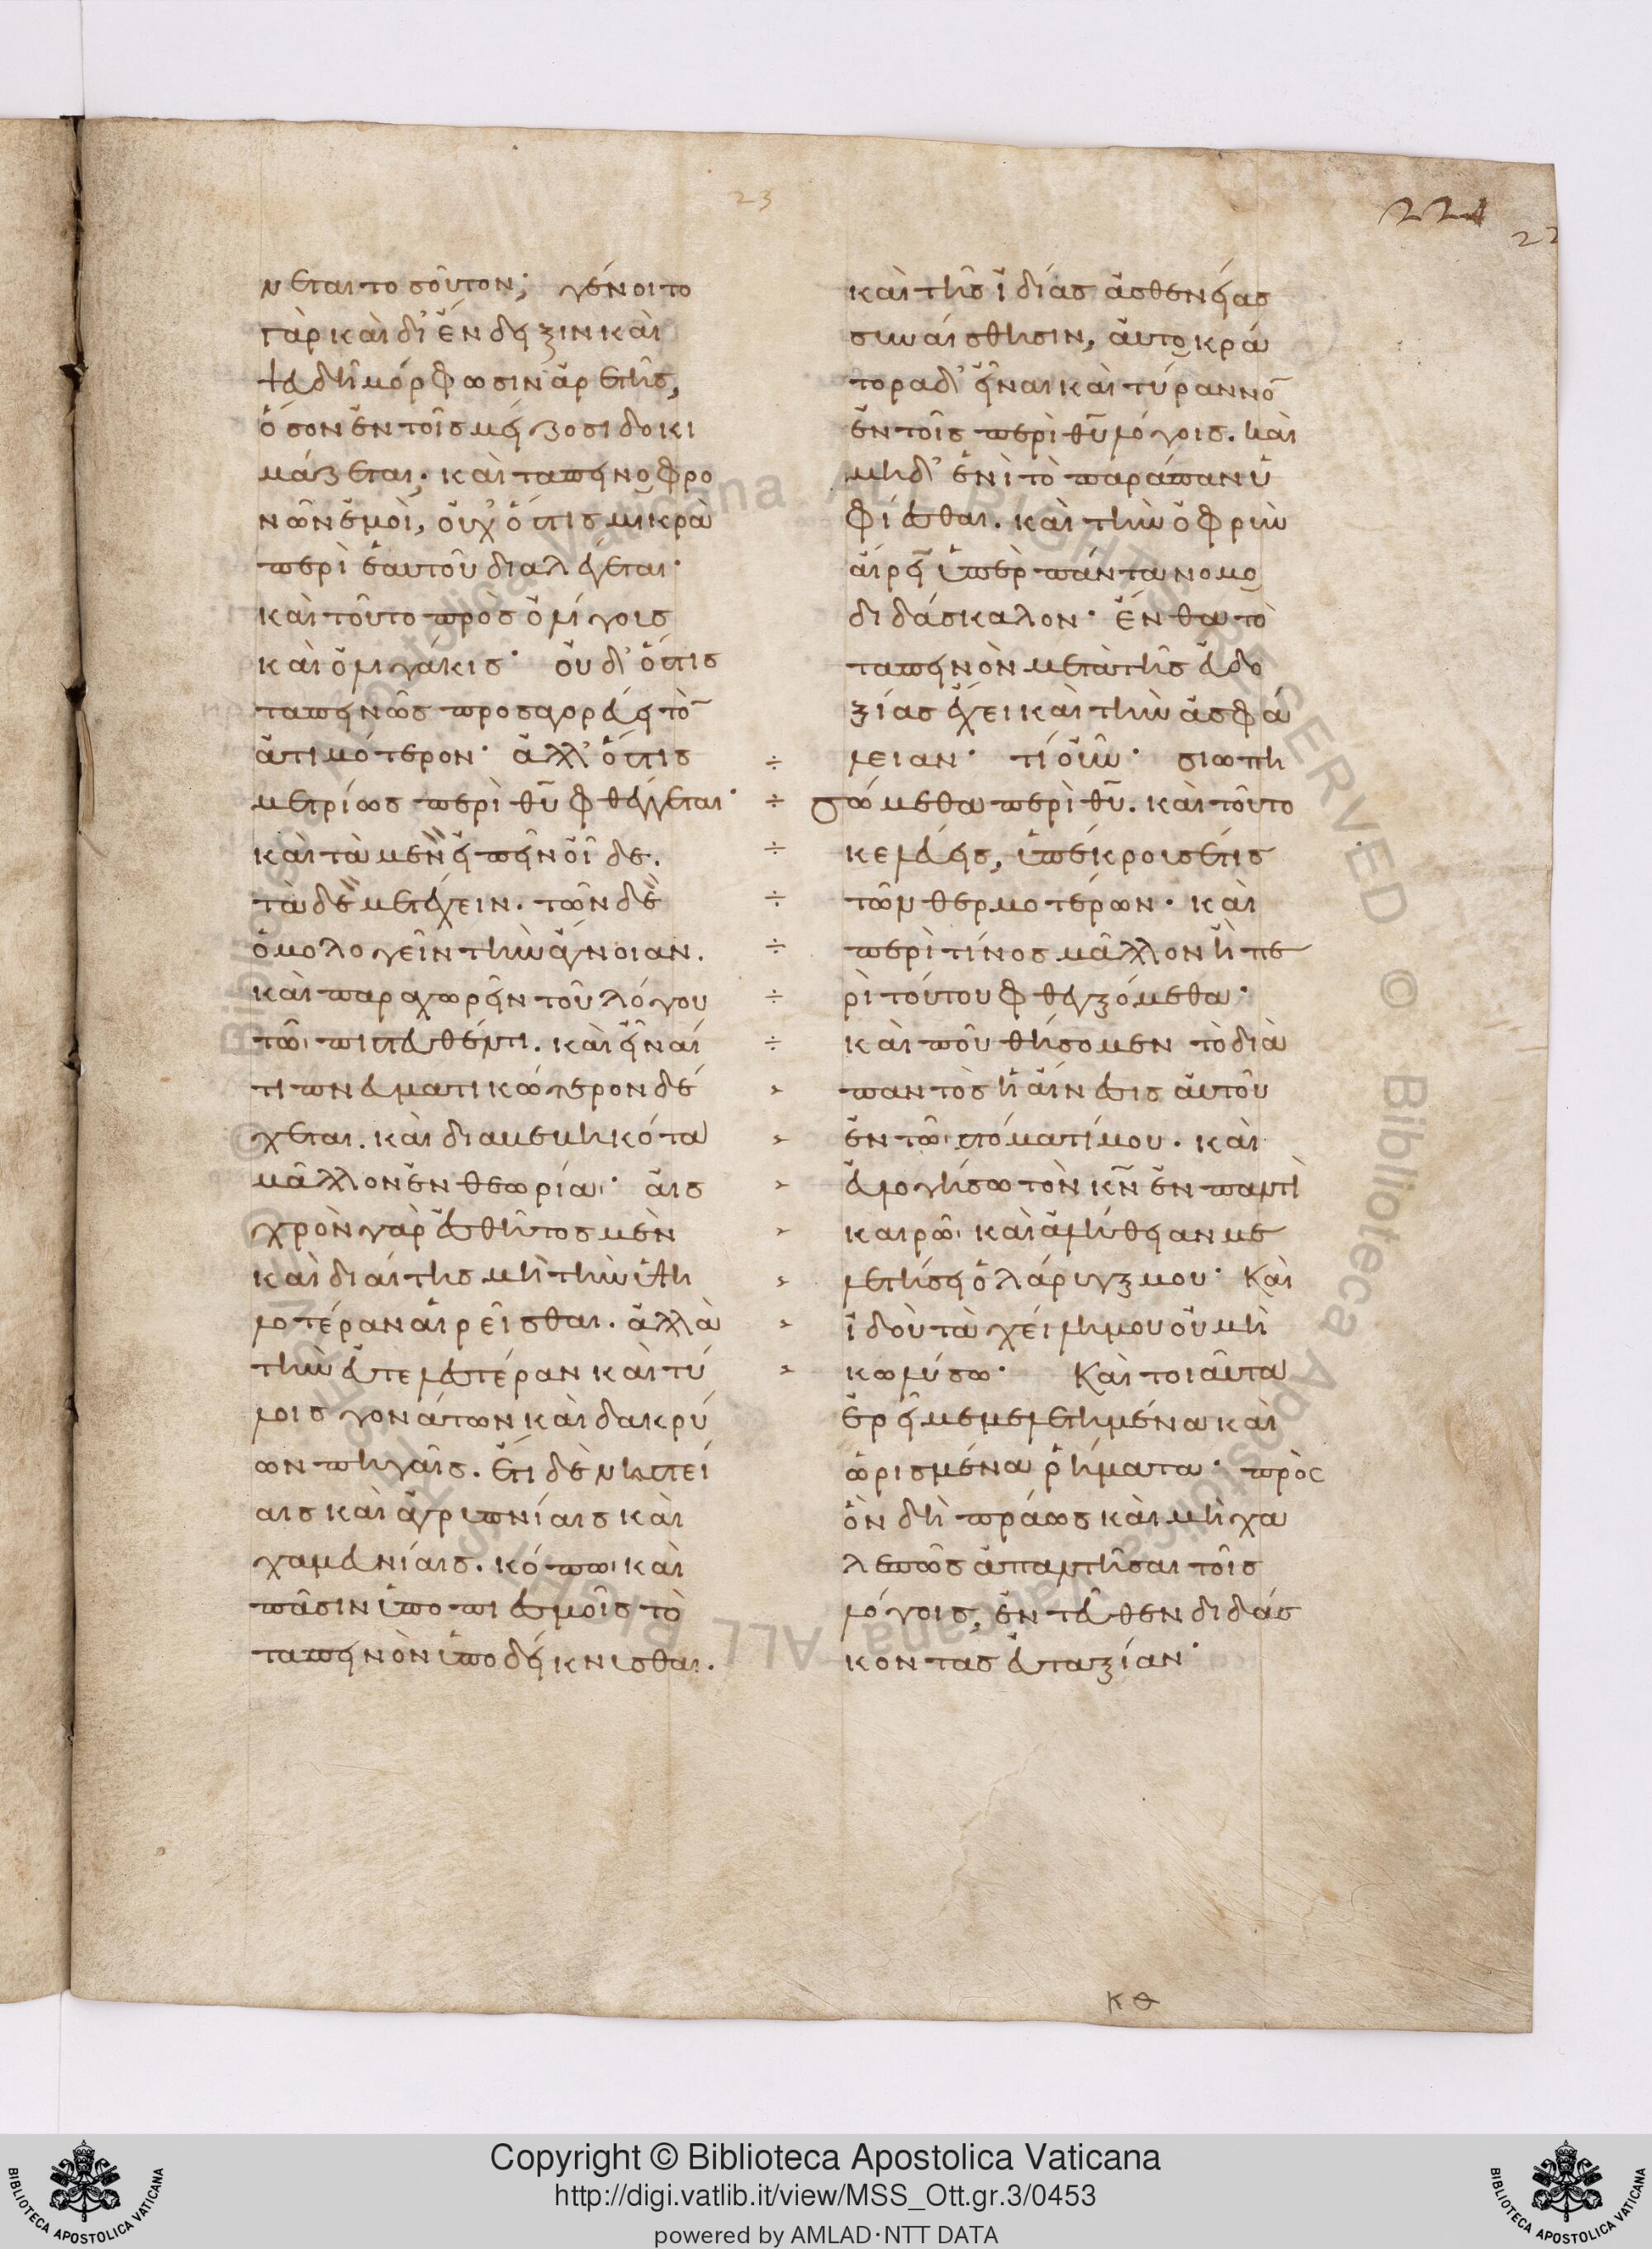 23
221
22
νεται τοσοῦτον; γένοιτο
γὰρ καὶ δι' ἔνδειξιν καὶ
ψευδῆ μόρφωσιν ἀρετῆς,
ὅσον ἐν τοῖς μείζοσι δοκι
μάζεται· καὶ ταπεινοφρο
νῶν ἐμοὶ, οὐχ ὅστις μικρὰ
περὶ ἑαυτοῦ διαλέγεται·
καὶ τοῦτο πρὸς ὀλίγοις
καὶ ὀλιγάκις· οὐδ' ὅστις
ταπεινῶς προσαγορεύει τὸ̄
ἀτιμότερον· ἀλλ' ὅστις
μετρίως περὶ θῦ φθέγγεται·
καὶ τὰ μὲν εἰπεῖν οἶδε.
τὰ δὲ μετέχειν. τῶν δὲ
ὁμολογεῖν τὴν ἄγνοιαν.
καὶ παραχωρεῖν τοῦ λόγου
τῶ πιστευθέντι. καὶ εἶναί
τι πνευματικώτερον δέ
χεται. καὶ διαβεβηκότα
μᾶλλον ἐν θεωρία· αἰσ
χρὸν γὰρ ἐσθῆτος μὲν
καὶ διαίτης μὴ τὴν ὑψη
λοτέραν αἱρεῖσθαι. ἀλλὰ
τὴν εὐτελεστέραν καὶ τύ
λοις γονάτων καὶ δακρύ
ων πηγαῖς. ἔτι δὲ νηστεί
αις καὶ ἀγρυπνίαις καὶ
χαμευνίαις. κόπω καὶ
πᾶσιν ὑποπιεσμοῖς τὸ
ταπεινὸν ὑποδείκνυσθαι.
καὶ τῆς ἰδίας ἀσθενείας
συναίσθησιν, αὐτοκρά
τορα δ' εἶναι καὶ τύραννο̄
ἐν τοῖς περὶ θῦ λόγοις. καὶ
μηδ' ἑνὶ τὸ παράπαν ὑ
φίεσθαι. καὶ τὴν ὀφρὺν
αἴρειν ὑπὲρ πάντα νομο
διδάσκαλον· ἔνθα τὸ
ταπεινὸν μετὰ τῆς εὐδο
ξίας ἔχει καὶ τὴν ἀσφά
λειαν· τί οὖν· σιωπη
÷ σώμεθα περὶ θῦ. καὶ τοῦτο
÷ κελεύεις, ὑπέκρουσέ τις
÷ τῶν θερμοτέρων· καὶ
÷ περὶ τίνος μᾶλλον ἢ πε
÷ ρὶ τούτου φθεγξόμεθα·
÷ καὶ ποῦ θήσομεν τὸ διὰ
> παντὸς ἡ αἴνεσις αὐτοῦ
> ἐν τῶ στόματί μου. καὶ
> εὐλογήσω τὸν κν̄ ἐν παντὶ
> καιρῶ· καὶ ἀλήθειαν με
> λετήσει ὁ λάρυγξ μου· Καὶ
> ἰδοὺ τὰ χείλη μου οὐ μὴ
> κωλύσω· Καὶ τοιαῦτα
ἐρεῖ μεμελετημένα καὶ
ὡρισμένα ῥήματα· πρὸς
ὃν δὴ πράως καὶ μὴ χα
λεπῶς ἀπαντῆσαι τοῖς
λόγοις, ἐντεῦθεν διδάσ
κοντας εὐταξίαν·
κθ
Copyright © Biblioteca Apostolica Vaticana
http://digi.vatlib.it/view/MSS_Ott.gr.3/0453
powered by AMLAD·NTT DATA
BIBLIOTECA APOSTOLICA VATICANA
BIBLIOTECA APOSTOLICA VATICANA